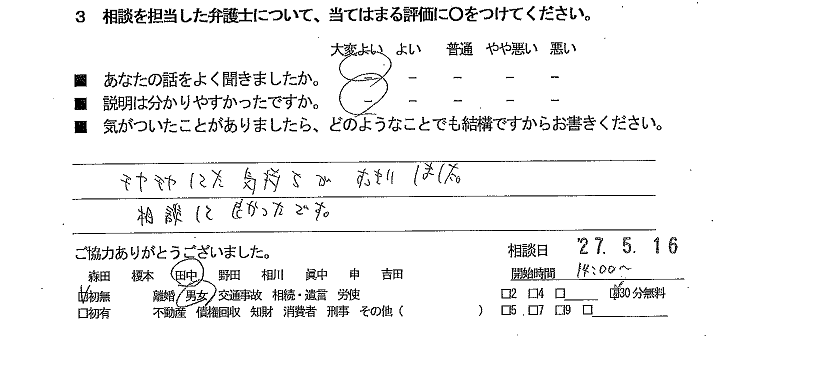 3 相談を担当した弁護士について、当てはまる評価に〇をつけてください。
大変よい よい 普通 やや悪い 悪い
■ あなたの話をよく聞きましたか。 － － － － －
■ 説明は分かりやすかったですか。 － － － － －
■ 気がついたことがありましたら、どのようなことでも結構ですからお書きください。
モヤモヤした気持ちが すっきり しました。
相談して 良かったです。
ご協力ありがとうございました。 相談日 '27. 5. 16
森田 榎本 田中 野田 相川 眞中 申 吉田 開始時間 14:00～
☑初無 離婚 男女 交通事故 相続・遺言 労使 □2 □4 □ ☑30分無料
□初有 不動産 債権回収 知財 消費者 刑事 その他( ) □5 □7 □9 □